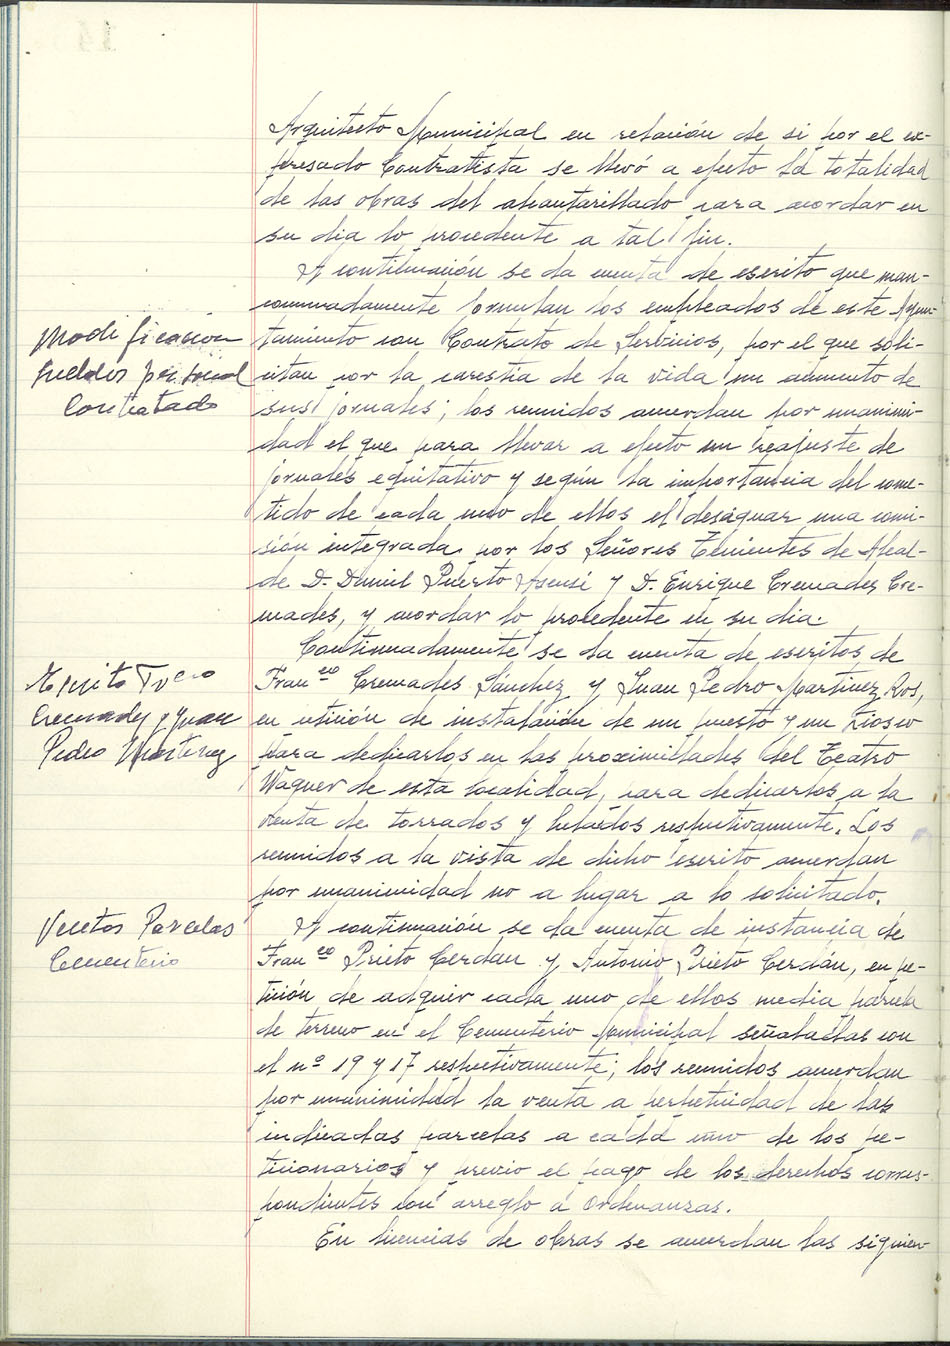 Arquitecto Municipal en relación de si por el ex-
presado Contratista se llevó a efecto la totalidad
de las obras del alcantarillado para acordar en
su dia lo procedente a tal fin.
A continuación se da cuenta de escrito que man-
comunadamente formulan los empleados de este Ayun-
Modificación
sueldos personal
Contratado
tamiento con Contrato de Servicios, por el que soli-
citan por la carestia de la vida un aumento de
sus jornales; los reunidos acuerdan por unanimi-
dad el que para llevar a efecto un reajuste de
jornales equitativo y según la importancia del come-
tido de cada uno de ellos el desiguar una comi-
sión integrada por los Señores Tenientes de Alcal-
de D. Daniel Puerto Asensi y D. Enrique Cremades Cre-
mades, y acordar lo procedente en su dia.
Continuadamente se da cuenta de escritos de
Escrito
Cremades y Juan
Pedro Martinez
Franco Cremades Sánchez y Juan Pedro Martinez Ros,
en petición de instalación de un puesto y un kiosco
para dedicarlos en las proximidades del Teatro
Wagner de esta localidad, para dedicarlos a la
venta de torrados y helados respectivamente. Los
reunidos a la vista de dicho escrito acuerdan
por unanimidad no a lugar a lo solicitado.
Ventas Parcelas
Cementerio
A continuación se da cuenta de instancia de
Franco Prieto Cerdan y Antonio Prieto Cerdán, en pe-
tición de adquir cada uno de ellos media parcela
de terreno en el Cementerio Municipal señaladas con
el nº 19 y 17 respectivamente; los reunidos acuerdan
por unanimidad la venta a perpetuidad de las
indicadas parcelas a cada uno de los pe-
ticionarios y previo el pago de los derechos corres-
pondientes con arreglo a Ordenanzas.
En licencias de obras se acuerdan las siguien-